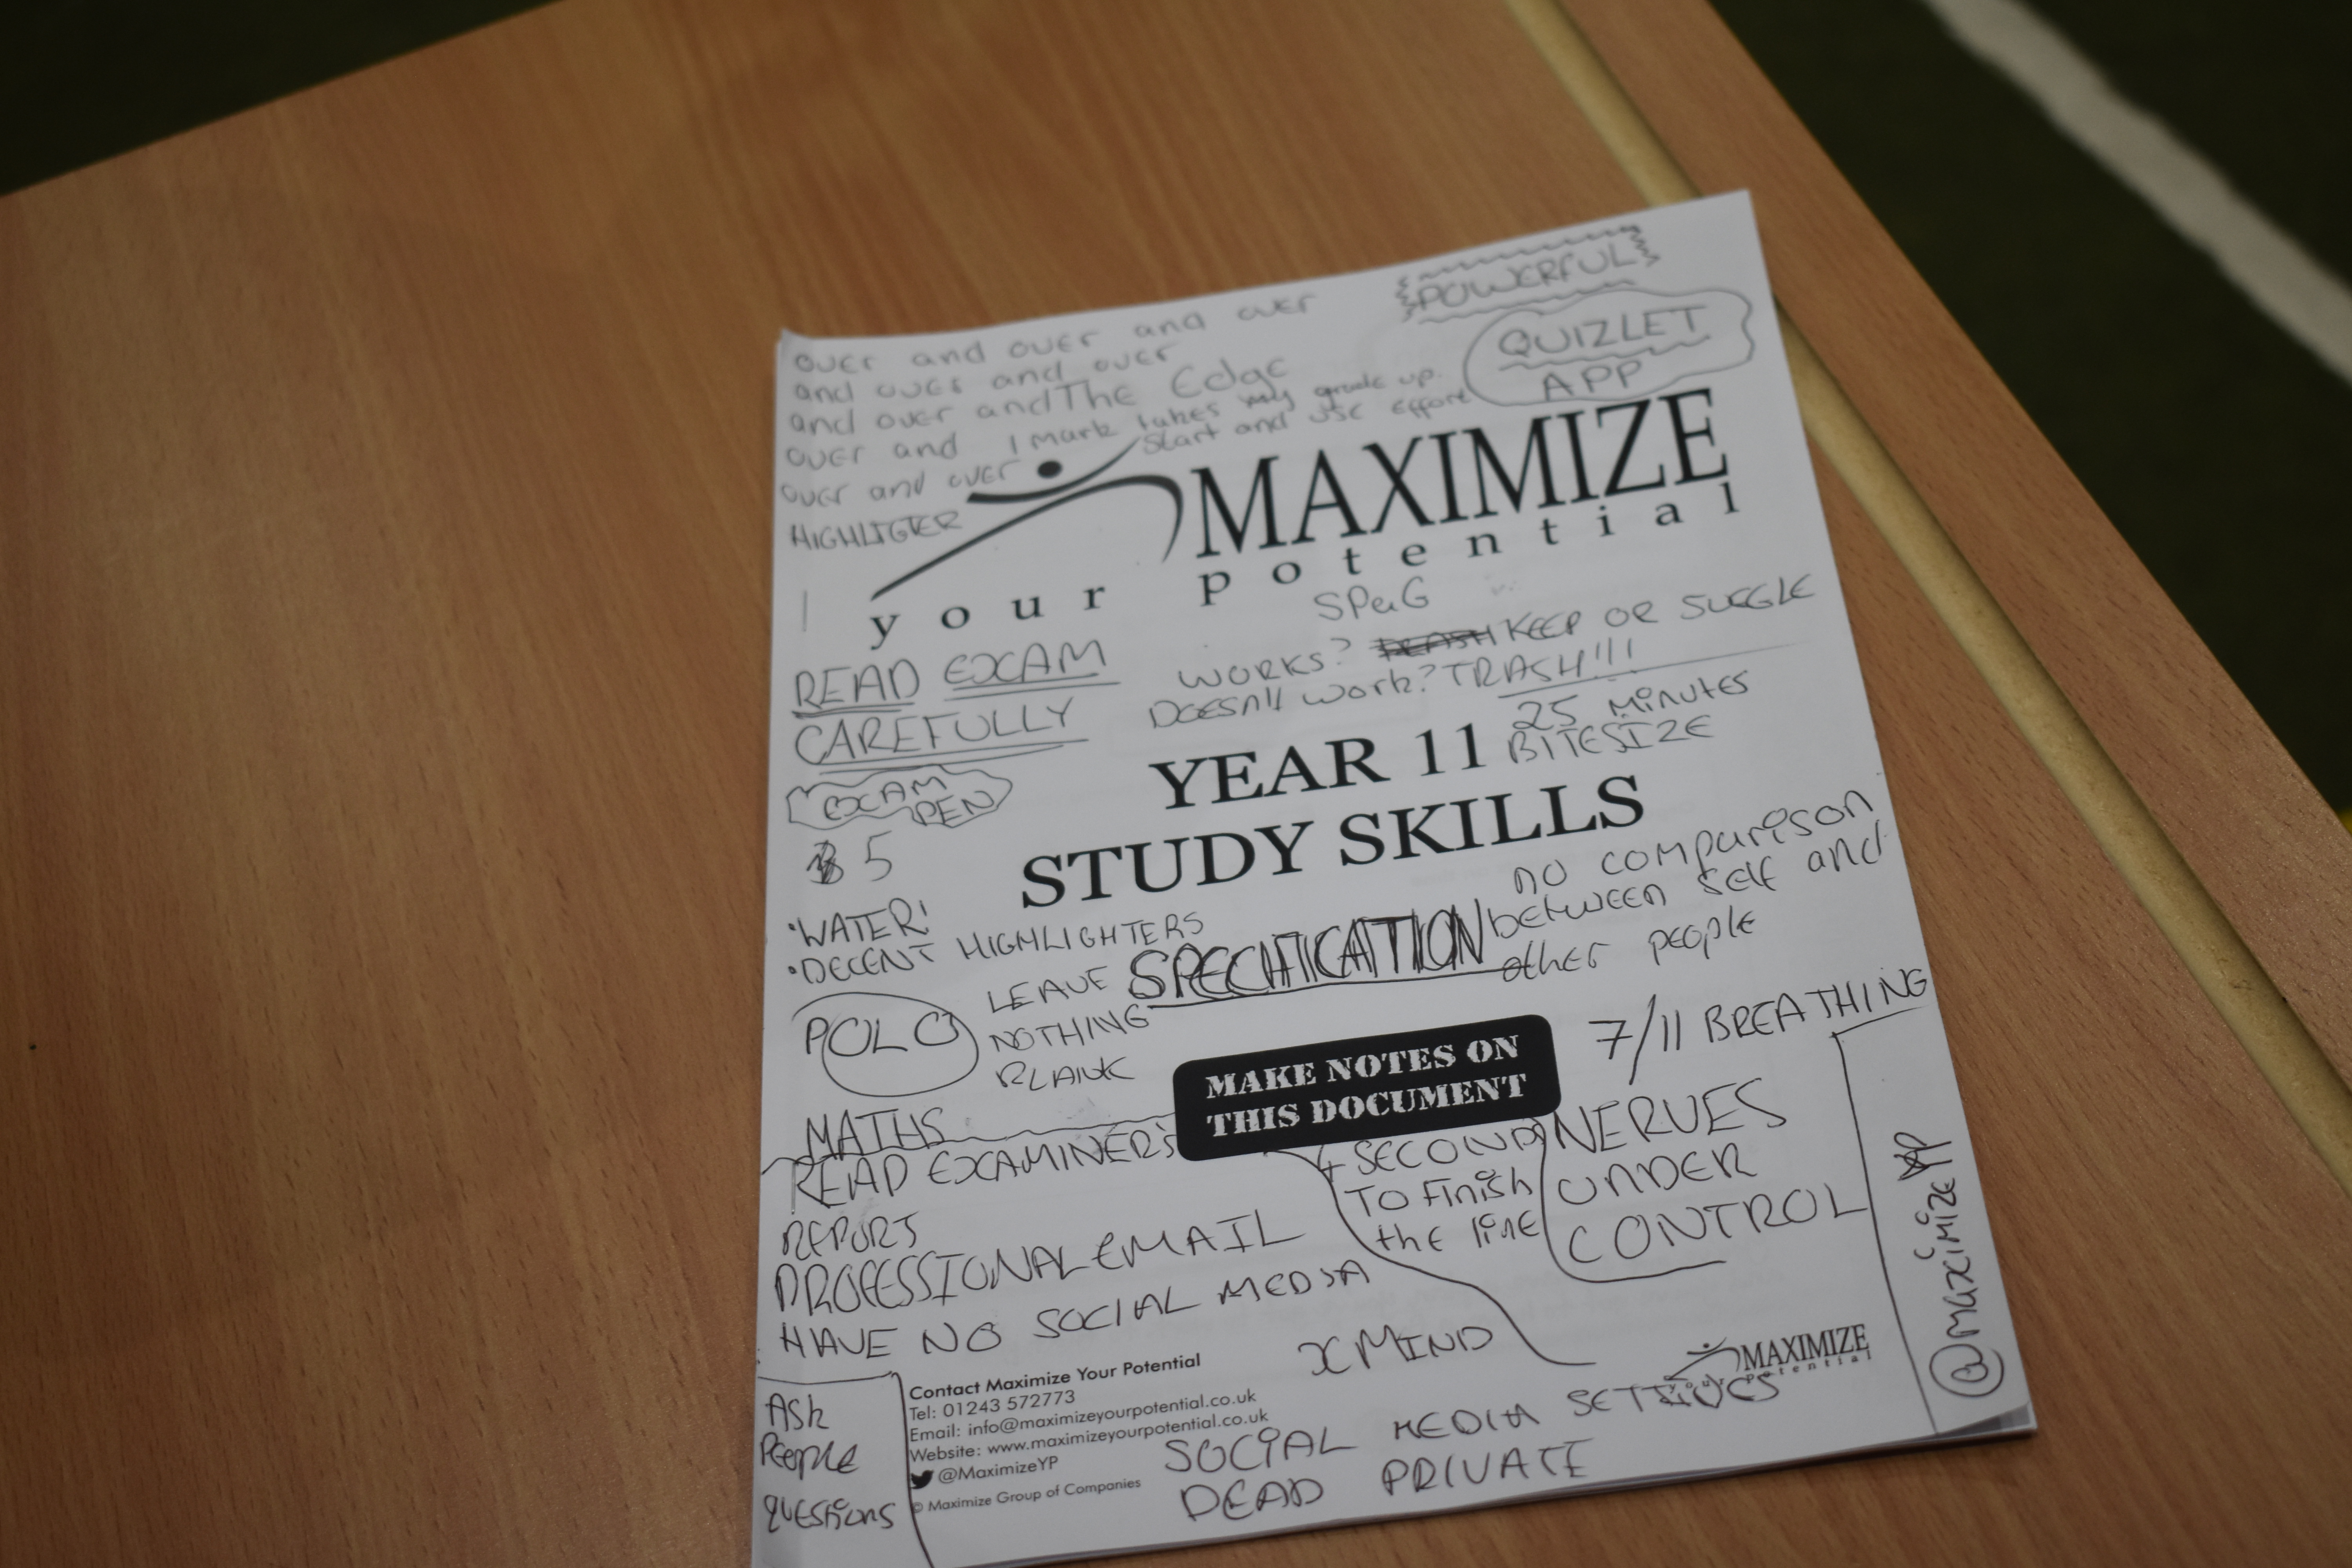 POWERFUL
QUIZLET
APP
over and over and over
and over and over
and over and The Edge
over and 1 mark takes my grade up.
Start and use effort
over and over
HIGHLIGTER
MAXIMIZE
your potential
SPaG
WORKS? KEEP OR SUGGLE
DOESN'T work? TRASH!!!!
READ EXAM
CAREFULLY
25 MiNUTES
BITESIZE
YEAR 11
STUDY SKILLS
EXAM
PEN
5
no comparison
between self and
other people
•WATER!
•DECENT HIGHLIGHTERS
SPECIFICATION
LEAVE
NOTHING
BLANK
POLO
7/11 BREATHING
MAKE NOTES ON
THIS DOCUMENT
MATHS
READ EXAMINER'S
REPORT
PROFESSIONAL EMAIL
HAVE NO SOCIAL MEDIA
+ SECOND
TO Finish
the line
NERVES
UNDER
CONTROL
@maximizeyp
XMIND
MAXIMIZE
your potential
Ask
People
QUESTiONS
Contact Maximize Your Potential
Tel: 01243 572773
Email: info@maximizeyourpotential.co.uk
Website: www.maximizeyourpotential.co.uk
@MaximizeYP
© Maximize Group of Companies
SOCIAL MEDIA SETTINGS
DEAD PRIVATE